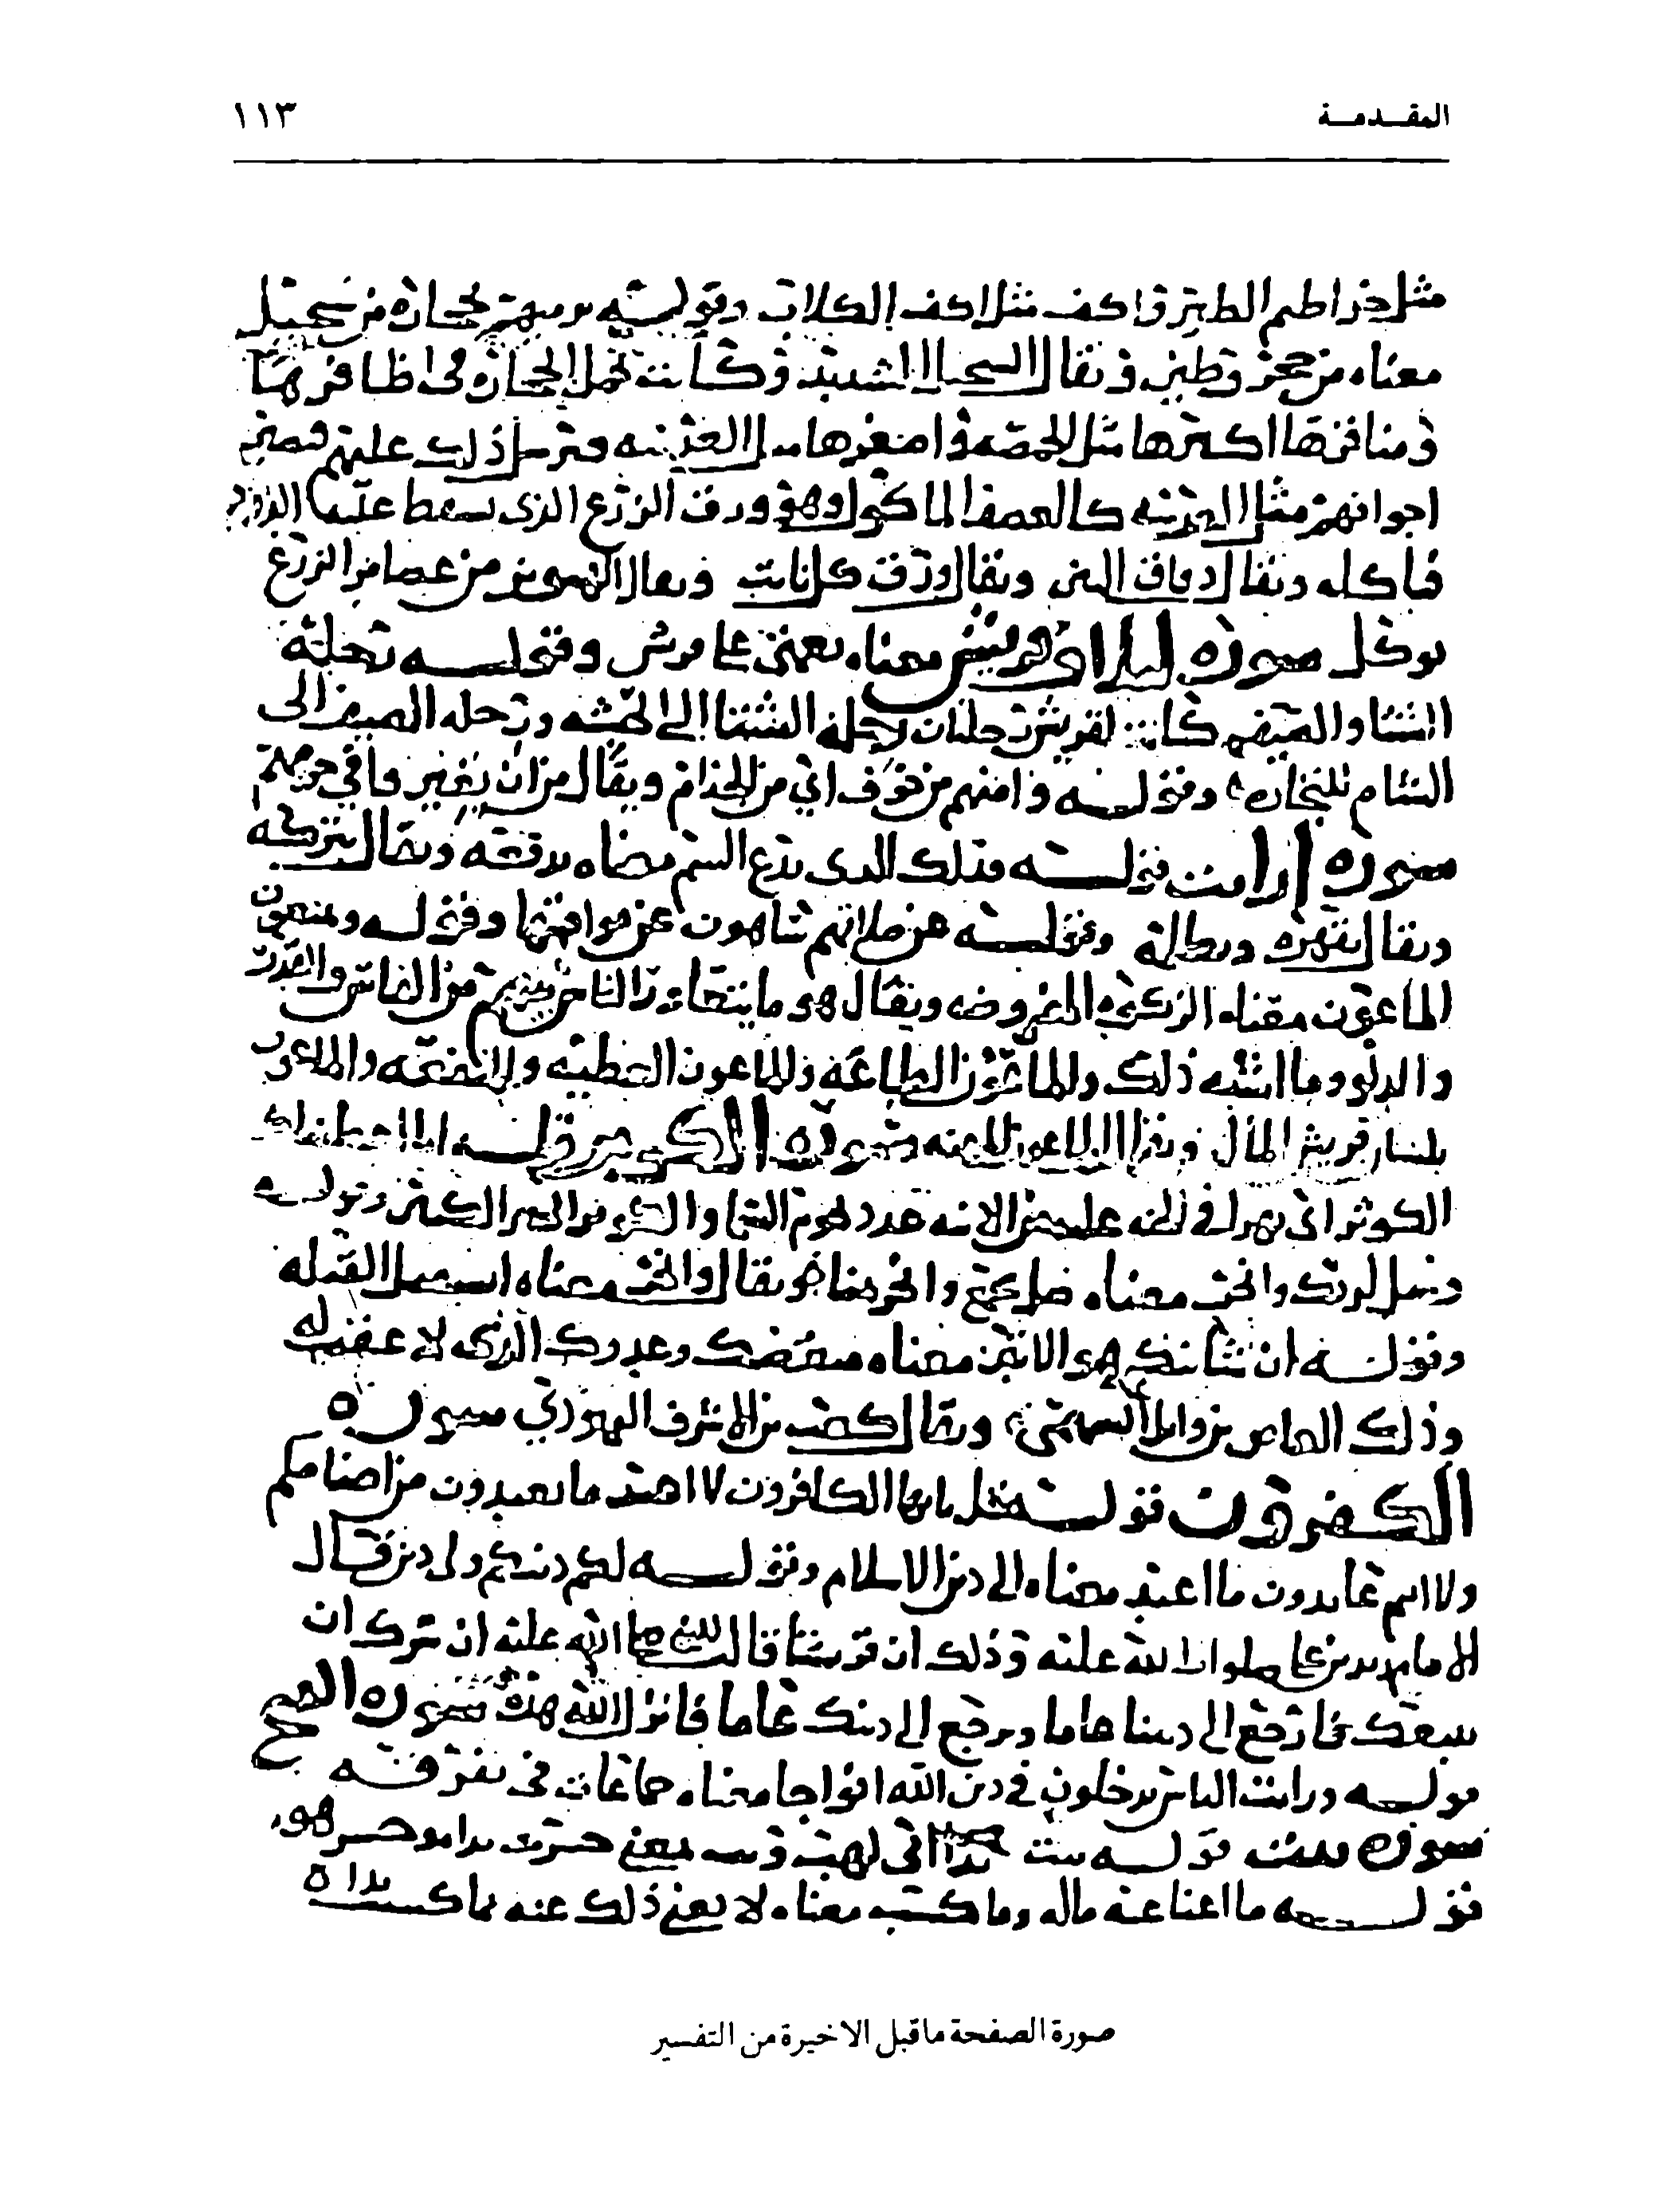 المقدمة
١١٣
مثل خراطم الطير واكف مثل اكف الكلاب وقوله ترميهم بحجارة من سجيل
معناه من حجر وطين ويقال السجيل الشديد وكانت تحمل الحجارة في اظافرها
ومناقرها اكبرها مثل الحمصه واصغرها مثل العدسه فترسل ذلك عليهم فصير
اجوافهم مثل كالعصف الماكول وهو ورق الزرع الذي يسقط عليه الدود
فاكله ويقال دقاق التبن ويقال ورق كل نابت ويقال من عصافر الزرع
يوكل سورة ليلاف قريش معناه نعمتي على قريش وقوله رحلة
الشتا والصيف كانت لقريش رحلتان رحلة الشتا الى الحبشه ورحله الصيف الى
الشام للتجارة وقوله وامنهم من خوف اي من الجذام ويقال من ان يغير في حرمهم
سورة ارايت قوله فذلك الذى يدع اليتيم معناه يدفعه ويقال يتركه
ويقال يقهره ويظلمه وقوله عن صلاتهم ساهون عن مواقيتها وقوله ويمنعون
الماعون معناه الزكوة المفروضه ويقال هو ما يتعاوره الناس بينهم من الفاس والقدر
والدلو وما اشبه ذلك والماعون الطاعة والماعون العطيه والمنفعه والماعون
بلسان قريش المال سورة الكوثر قوله انا اعطيناك
الكوثر اي نهرا في الجنه عليه من الانيه عدد نجوم السما والكوثر الخير الكثير وقوله
فصل لربك وانحر معناه صل بجمع وانحر بمنا ويقال وانحر معناه استقبل القبله
وقوله ان شانئك هو الابتر معناه مبغضك وعدوك الذى لا عقب له
وذلك العاص بن وائل السهمى ويقال كعب بن الاشرف اليهودي سورة
الكفرون قوله قل يا ايها الكافرون لا اعبد ما تعبدون من اصنامكم
ولا انتم عابدون ما اعبد معناه الى دين الاسلام وقوله لكم دينكم ولى دين قال
الامام زيد بن على صلوات الله عليه وذلك ان قريشا قالت للنبي صلى الله عليه ان سرك ان
نتبعك عاما ترجع الى ديننا عاما ونرجع الى دينك عاما فانزل الله هذه سورة الفتح
قوله ورايت الناس يدخلون في دين الله افواجا معناه جماعات في تفرقه
سورة تبت قوله تبت يدا ابي لهب وتب يعني خسرت يدا وخسر هو
قوله ما اغنا عنه ماله وما كسب معناه لا يغني ذلك عنه ما كسبت يداه
صورة الصفحة ما قبل الاخيرة من التفسير